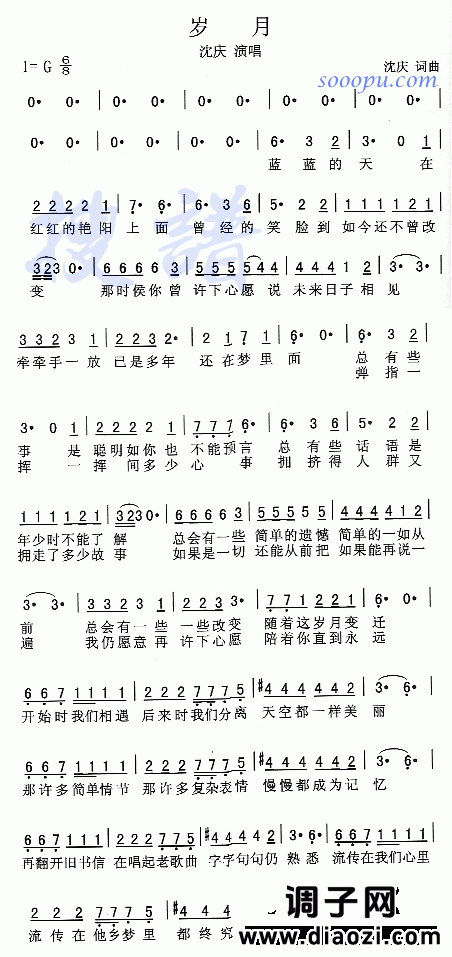 岁 月
沈庆 演唱
1= G 6/8
沈庆 词曲
sooopu.com
0· 0· 0· 0· 0· 0· 0· 0· 0· 0·
0· 0· 0· 0· 6· 3 2 3· 0 1
蓝 蓝 的 天 在
2 2 2 2 1 7· 6· 6· 3 6 5· 2 2 1 1 1 1 2 1
红红的艳 阳 上 面 曾 经 的 笑 脸 到 如今还不曾改
3 2 3 0· 6 6 6 6 3 5 5 5 5 5 4 4 3 4 1 2 3· 3·
变 那时侯你曾 许下心愿 说 未来日子 相 见
3 3 3 3 1 2 2 2 2 3 2 1 7 1 6· 0· 6· 5 6
牵牵手一 放 已是多年 还 在梦里 面 总 有 些
弹 指 一
3· 0 1 2 2 2 2 1 7 7 7 6· 6· 3 6 5· 2 2
事 是 聪明如你 也 不能预言 总 有 些 话 语 是
挥 一 挥 间多少 心 事 拥 挤 得 人 群 又
1 1 1 1 2 1 3 2 3 0· 6 6 6 6 3 5 5 5 5 5 5 4 4 4 4 1 2
年少时不能了 解 总会有一些 简单的遗憾 简单的一如从
拥走了多少故 事 如果是一切 还能从前把 如果能再说一
3· 3· 3 3 2 3 1 2 2 2 2 3· 7 7 1 2 2 1 6· 0·
前 总会有一 些 一些改变 随着这岁月变 迁
遍 我仍愿意 再 许下心愿 陪着你直到永 远
6 6 7 1 1 1 1 2 2 2 7 7 7 5 #4 4 4 4 4 2 3· 6·
开始时我们相遇 后来时我们分离 天空都一样美 丽
6 6 7 1 1 1 1 2 2 2 7 7 7 5 #4 4 4 4 4 2 3· 6·
那许多简单情节 那许多复杂表情 慢慢都成为记 忆
6 6 7 1 1 1 1 2 2 2 7 7 7 5 #4 4 4 4 4 2 3· 6· 6 6 7 1 1 1 1
再翻开旧书信 在唱起老歌曲 字字句句仍 熟悉 流传在我们心里
2 2 2 7 7 7 5 #4 4 4
流传在他乡梦里 都终究
调子网
www.diaozi.com